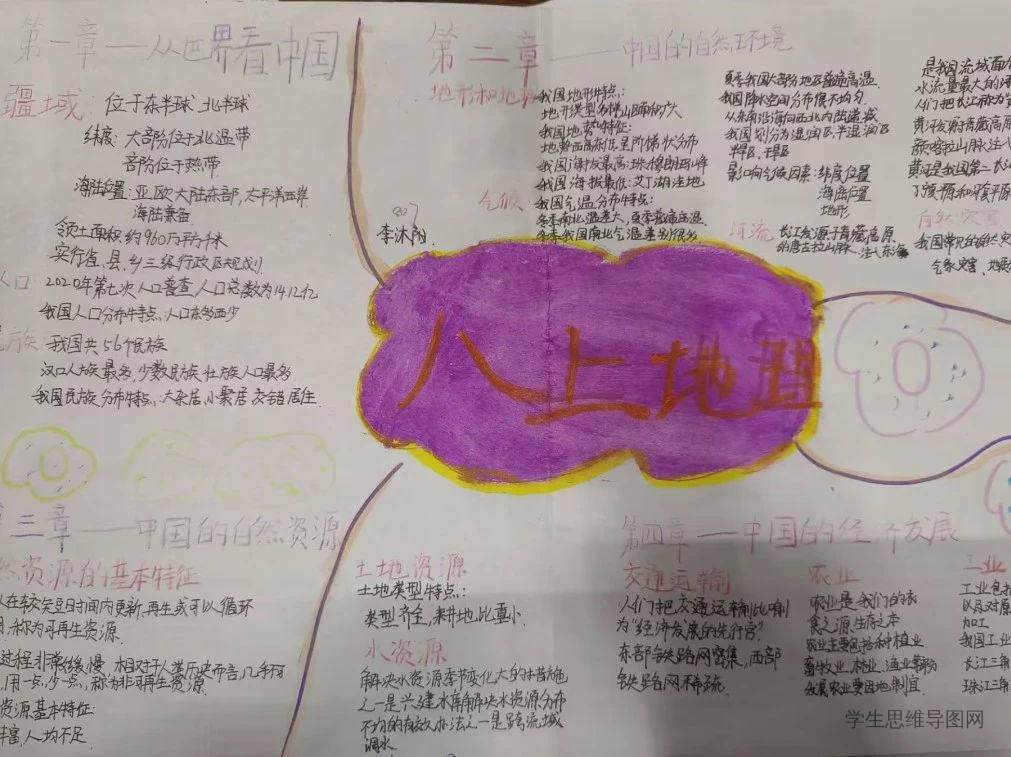 第一章——从世界看中国
疆域 位于东半球、北半球
纬度：大部分位于北温带
部分位于热带
海陆位置：亚欧大陆东部，太平洋西岸
海陆兼备
领土面积约960万平方千米
实行省、县、乡三级行政区规划
人口 2020年第七次人口普查，人口总数为14.12亿
我国人口分布特点：人口东多西少
民族 我国共56个民族
汉口人族最多，少数民族壮族人口最多
我国民族分布特点：大杂居，小聚居交错居住
第二章——中国的自然环境
地形和地势
我国地形特点：
地形类型多样山区面积广大
我国地势特征：
地势西高东低呈阶梯状分布
我国海拔最高：珠穆朗玛峰
我国海拔最低：艾丁湖洼地
气候 我国气温分布特点：
冬季南北温差大，夏季普遍高温
冬季我国南北气温差别很多
夏季我国大部分地区普遍高温
我国降水空间分布很不均匀
从东南沿海向西北内陆递减
我国划分为湿润区，半湿润区
半旱区，干旱区
影响气候因素：纬度位置
海陆位置
地形
河流 长江发源于青藏高原
的唐古拉山脉，注入东海
是我国流域面
水流量最大的河
人们把长江称为
黄河发源青藏高原
颜喀拉山脉注入
黄河是我国第二长
自然灾害
我国常见的自然灾
气象灾害，地质
李沐阳
八上地理
第三章——中国的自然资源
然资源的基本特征
人在较短时间内更新，再生或可以循环
用，称为可再生资源
过程非常缓慢 相对于人类历史而言，几乎不
，用一点，少一点，称为非可再生资源
资源基本特征：
丰富，人均不足
土地资源
土地类型特点：
类型齐全，耕地比重小
水资源
解决水资源季节变化大的措施
之一是兴建水库解决水资源分布
不均的有效办法之一是跨流域
调水
第四章——中国的经济发展
交通运输
人们把交通运输比喻
为“经济发展的先行官”
东部铁路网密集，西部
铁路网稀疏
农业
农业是我们的衣
食之源，生存之本
农业主要包括种植业
畜牧业、林业、渔业等部分
发展农业要因地制宜
工业
工业包括
以及对原
加工
我国工业
长江三角
珠江三角
学生思维导图网